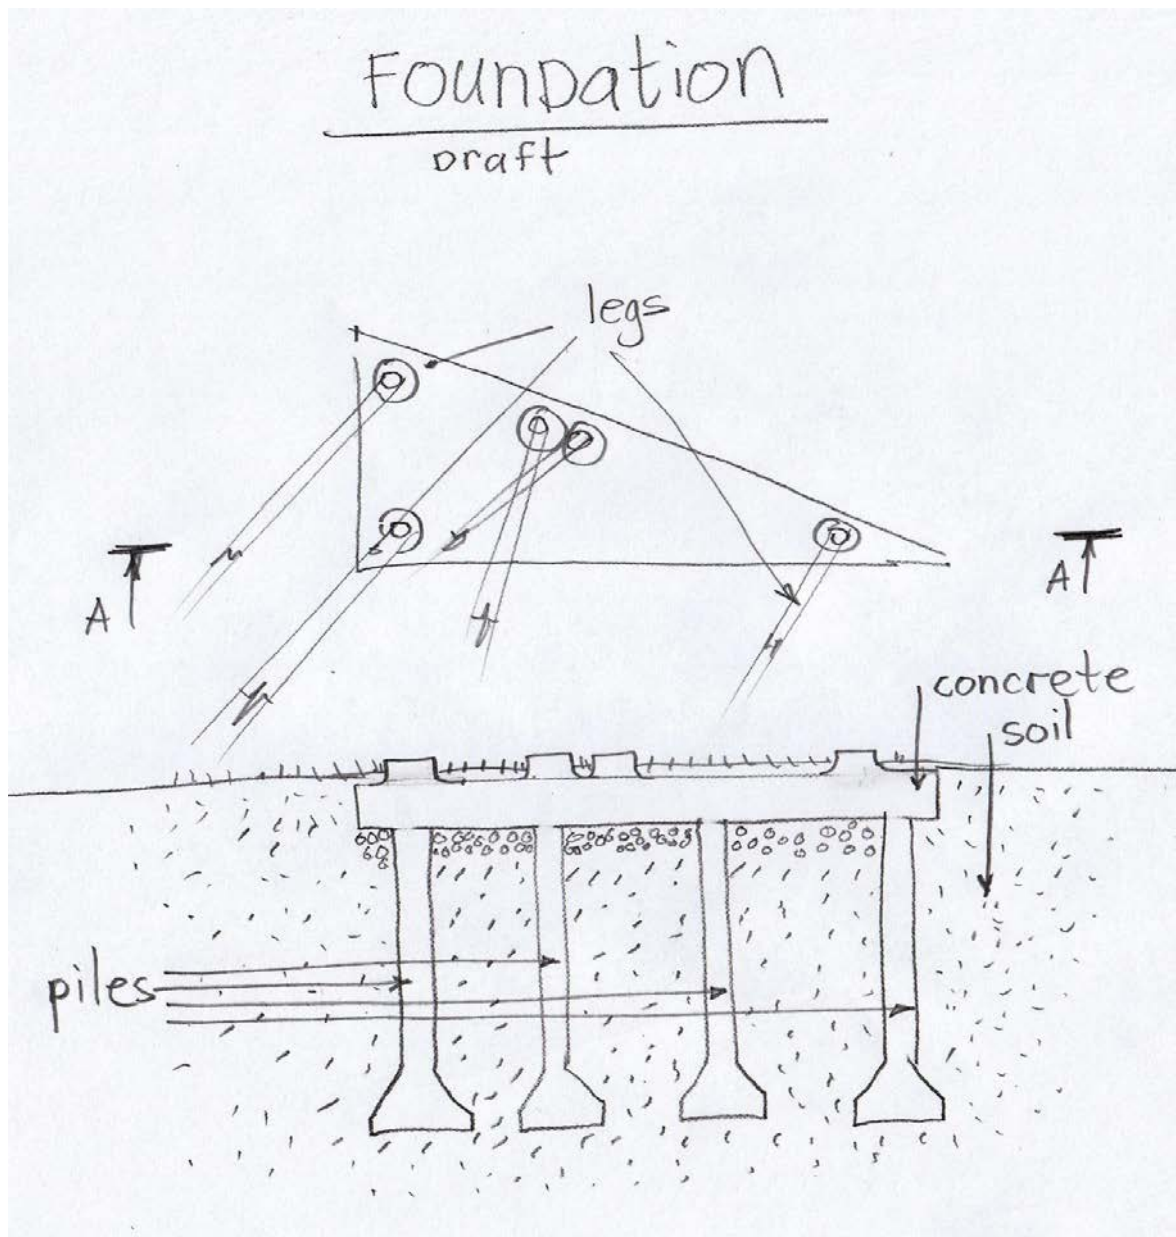 Foundation
Draft
legs
A
A
concrete
soil
piles